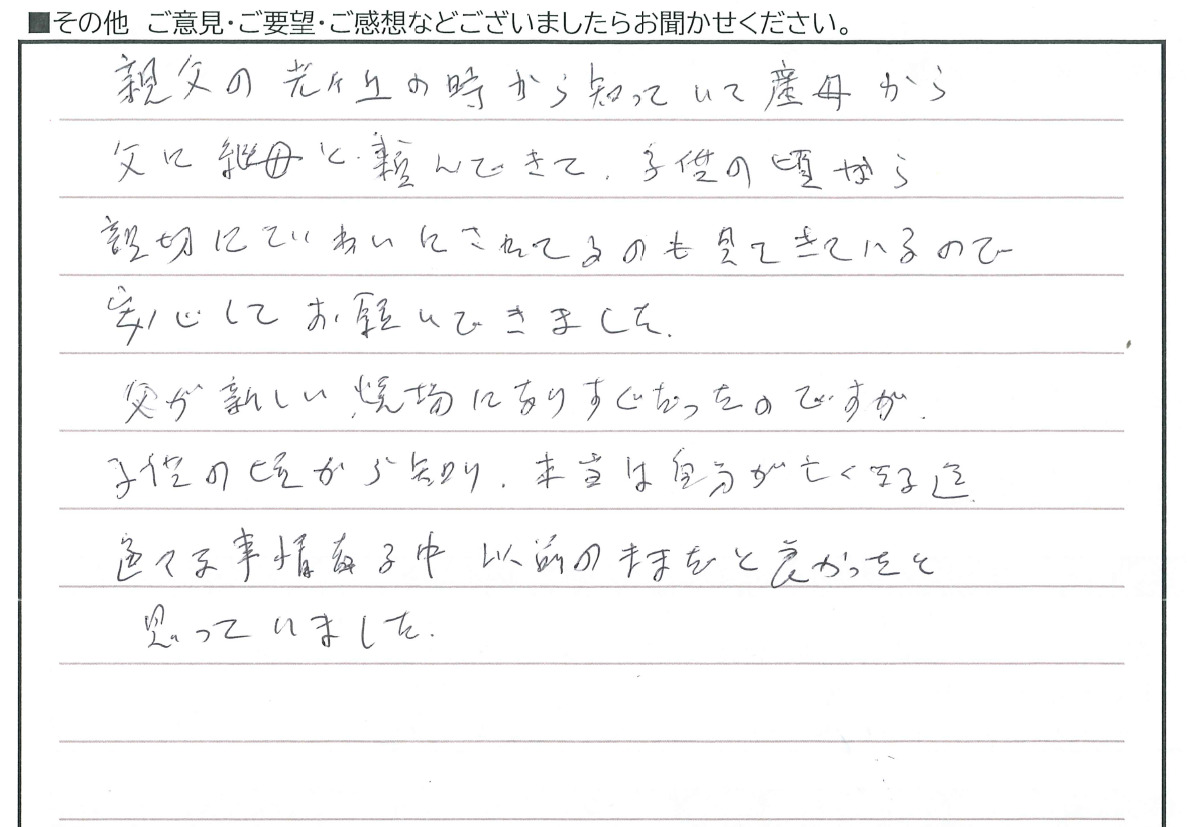 ■その他 ご意見・ご要望・ご感想などございましたらお聞かせください。
親父の光ケ丘の時から知っていて産母から
父に継母と頼んできて、子供の頃から
親切にていねいにされてるのも見てきているので
安心してお願いできました。
父が新しい焼場になりすぐだったのですが、
子供の頃から知り、本当は自分が亡くなる迄
色々な事情ある中 以前のままだと良かったと
思っていました。